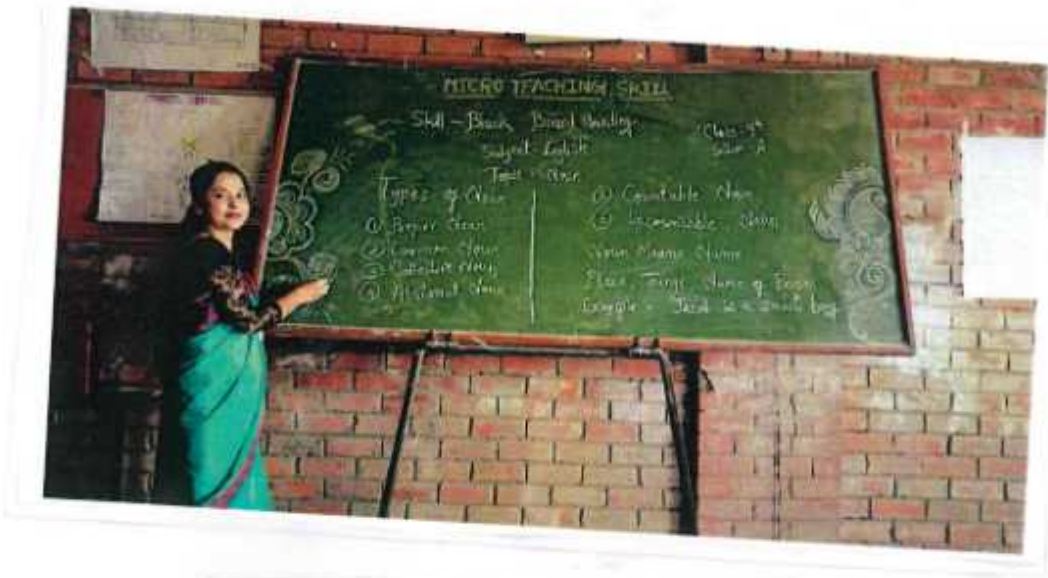 MICRO TEACHING SKILL
Skill - Black Board Writing
Class - 9th
Subject English
Topic - Noun
Types of Noun
① Proper Noun
② Common Noun
③ Collective Noun
④ Abstract Noun
⑤ Countable Noun
⑥ Uncountable Noun
Noun Means Name
Place, Things, Name of
Example - is a Small boy